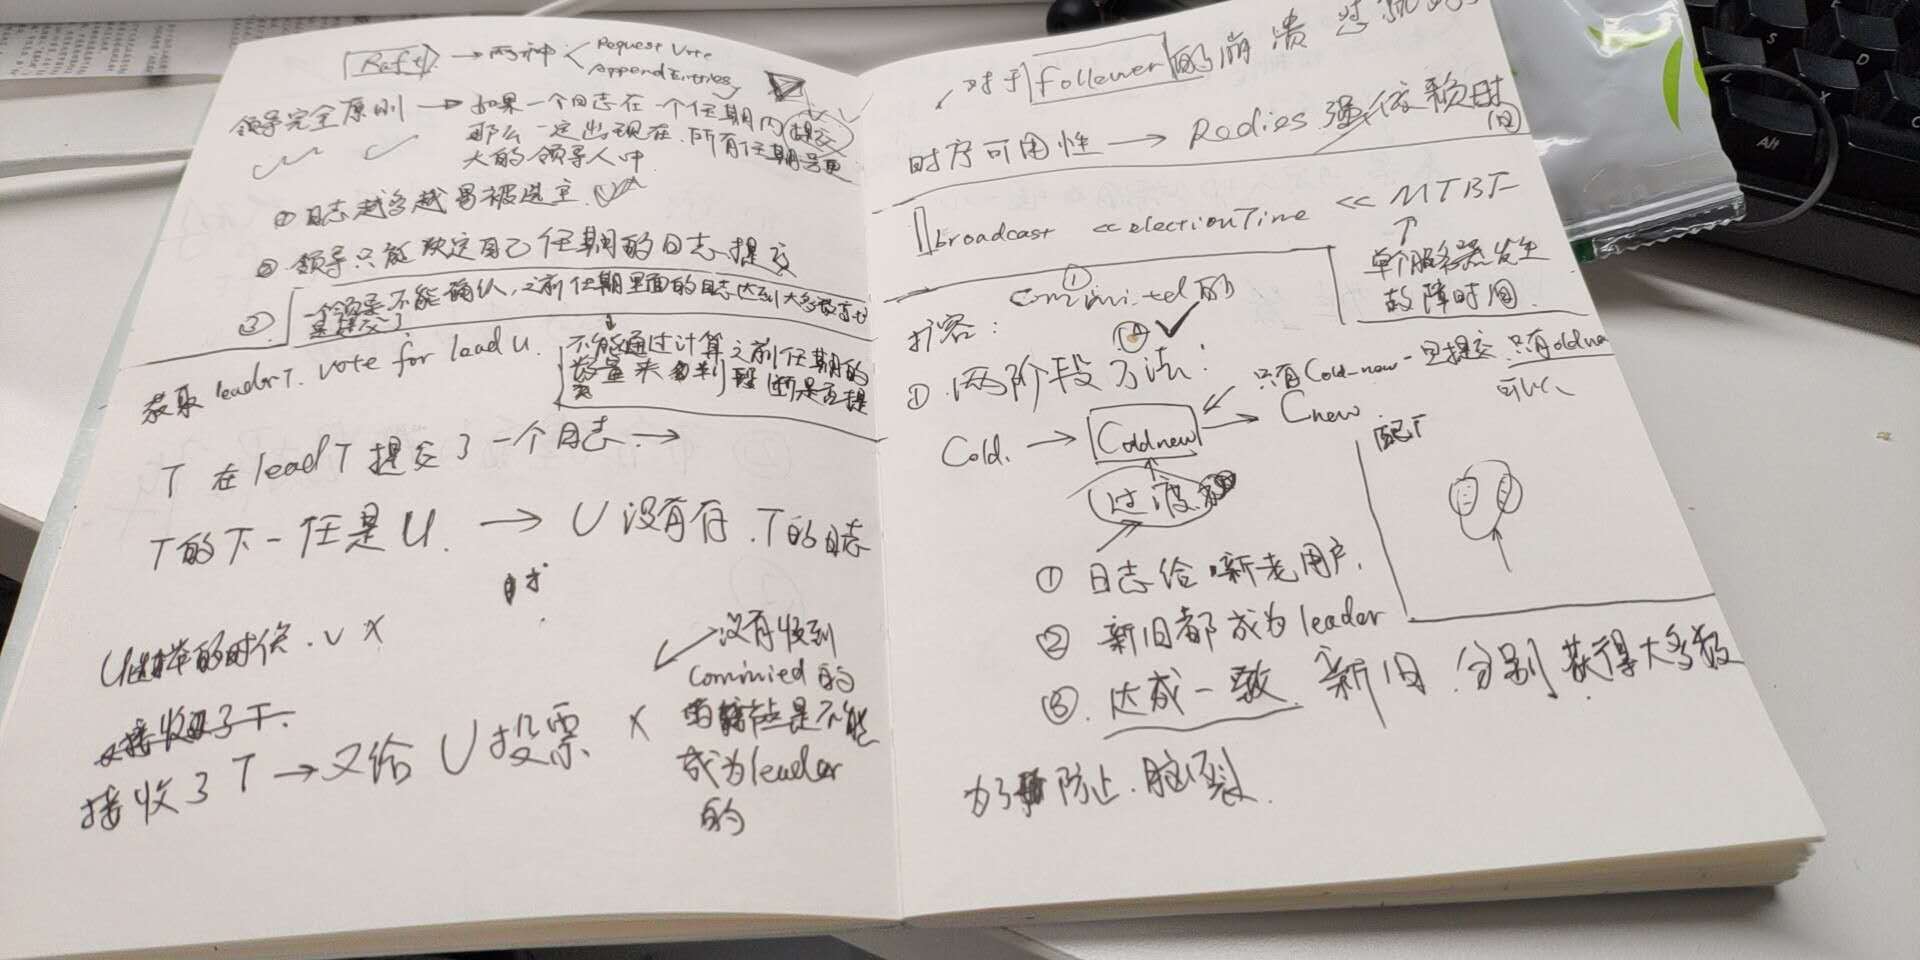 Raft → 两种 < Request Vote
AppendEntries
领导完全原则 → 如果一个日志在一个任期内提交
那么一定出现在所有任期号更
大的领导人中
① 日志越多越易被选主
② 领导只能决定自己任期的日志提交
③ 一个领导不能确认,之前任期里面的日志达到大多数
是提交了
不能通过计算之前任期的
数量来判断是否提
获取 leaderT. vote for lead U.
T 在 lead T 提交了一个日志 →
T的下一任是 U. → U 没有存 T的日志
时
U选举的时候
接收了 T.
接收了 T → 又给 U 投票 ×
没有收到
commied 的
节点是不能
成为leader
的
对于 follower 的崩溃
时序可用性 → Redies 强依赖时
间
broadcast << electionTime << MTBF
↑
单个服务器发生
故障时间
① commited 的
扩容:
① 两阶段方法:
只有Cold-new一旦提交,只有oldnew
可以
Cold. → Coldnew → Cnew
过渡
① 日志给新老用户.
② 新旧都成为 leader
③. 达成一致 新旧 分别获得大多数
为了防止 脑裂.